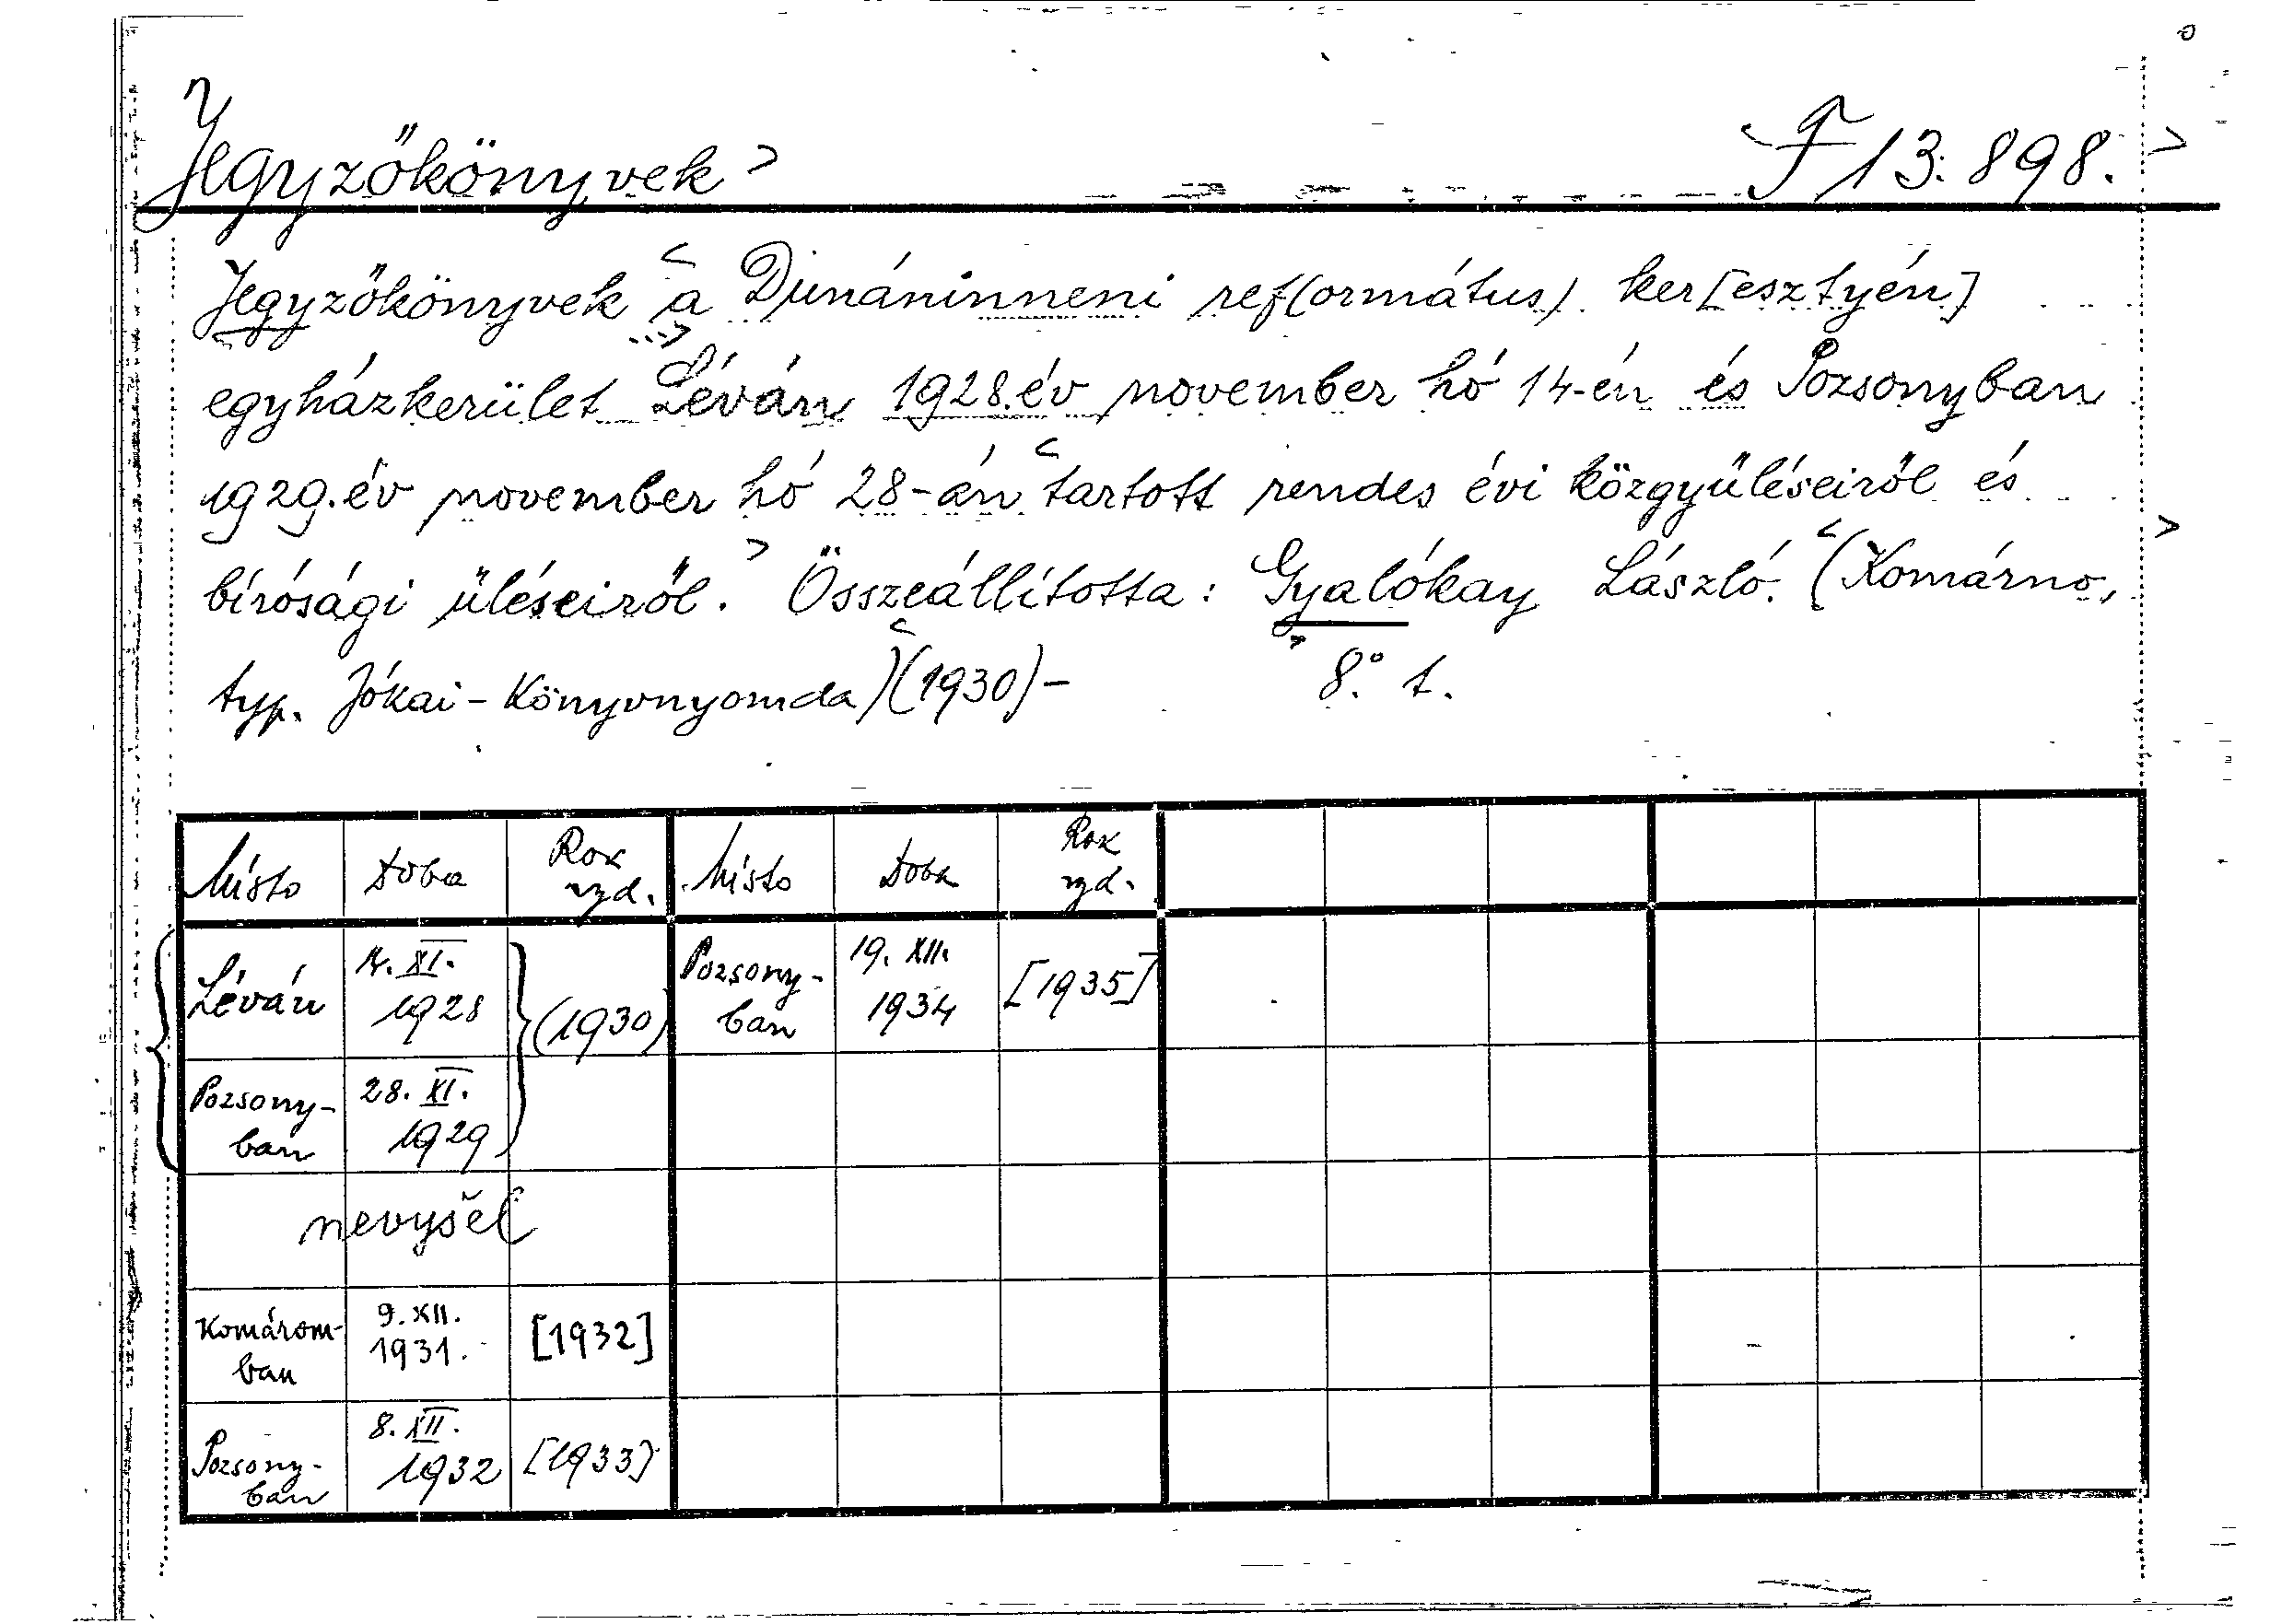 Jegyzőkönyvek F 13.898.
Jegyzőkönyvek a Dunáninneni ref(ormátus) ker[esztyén]
egyházkerület Léván 1928.év november hó 14-én és Pozsonyban
1929.év november hó 28-án tartott rendes évi közgyűléseiről és
bírósági üléseiről. Összeállította: Gyalókay László. (Komárno,
typ. Jókai-Könyvnyomda)(1930)- 8° t.
Místo Doba Rok vyd. Místo Doba Rok vyd.
Léván 14. XI. 1928 (1930) Pozsony-ban 19. XII. 1934 [1935]
Pozsony-ban 28. XI. 1929
nevyšel
Komárom-ban 9. XII. 1931. [1932]
Pozsony-ban 8. XII. 1932 [1933]